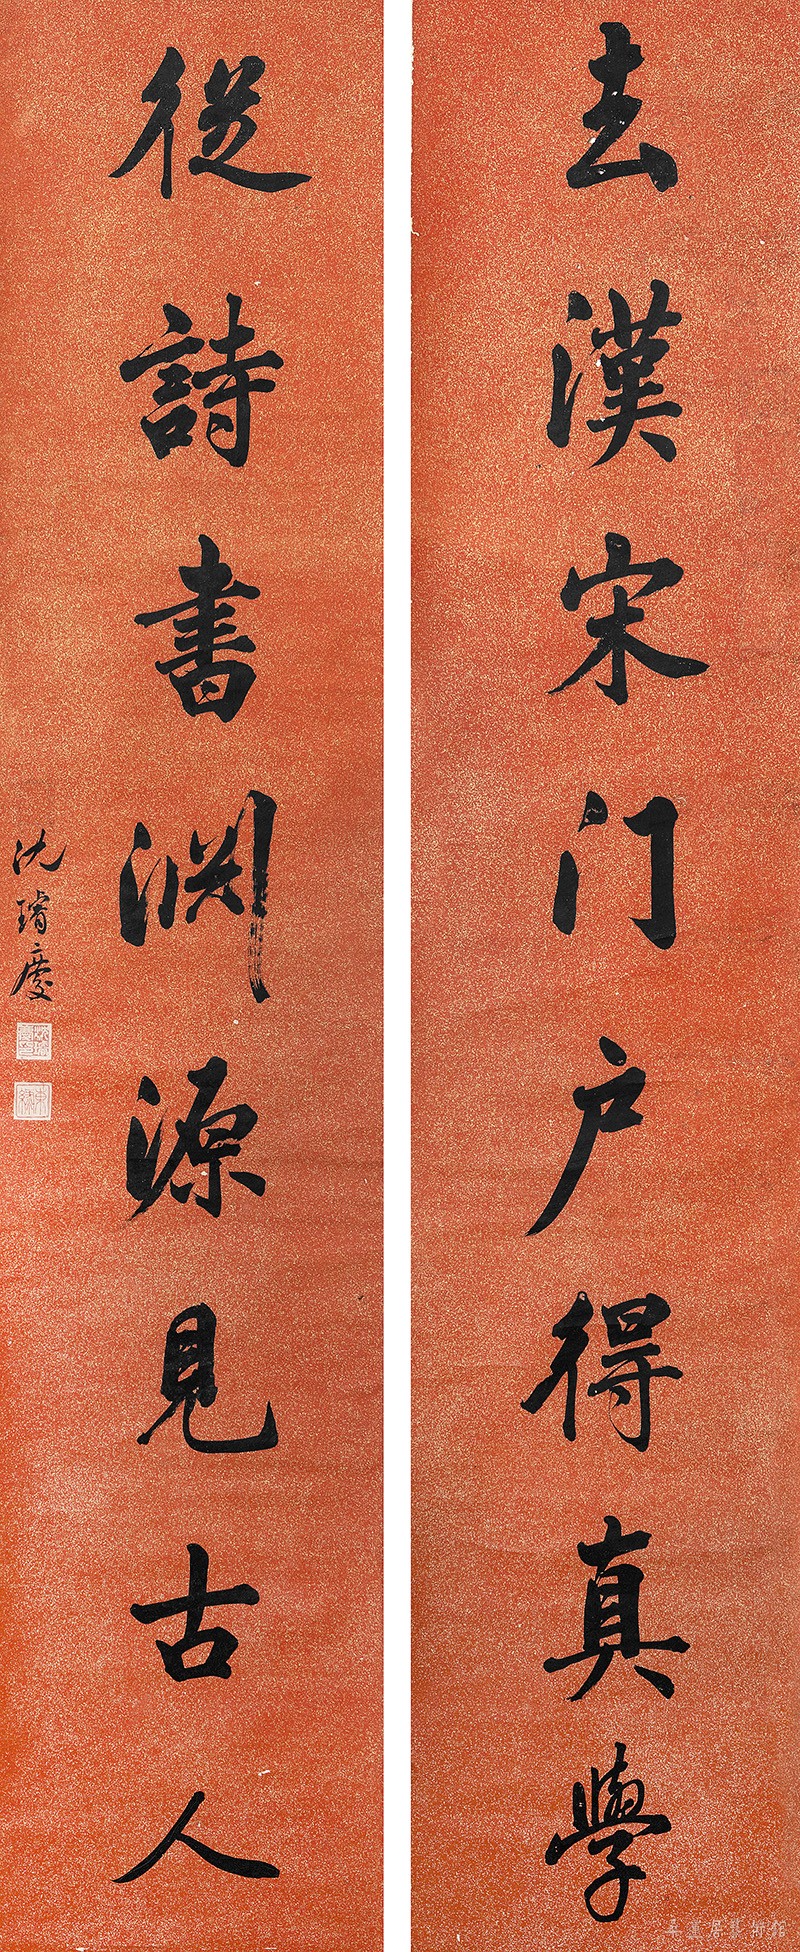 去漢宋门户得真學
從詩書淵源見古人
沈瑨慶